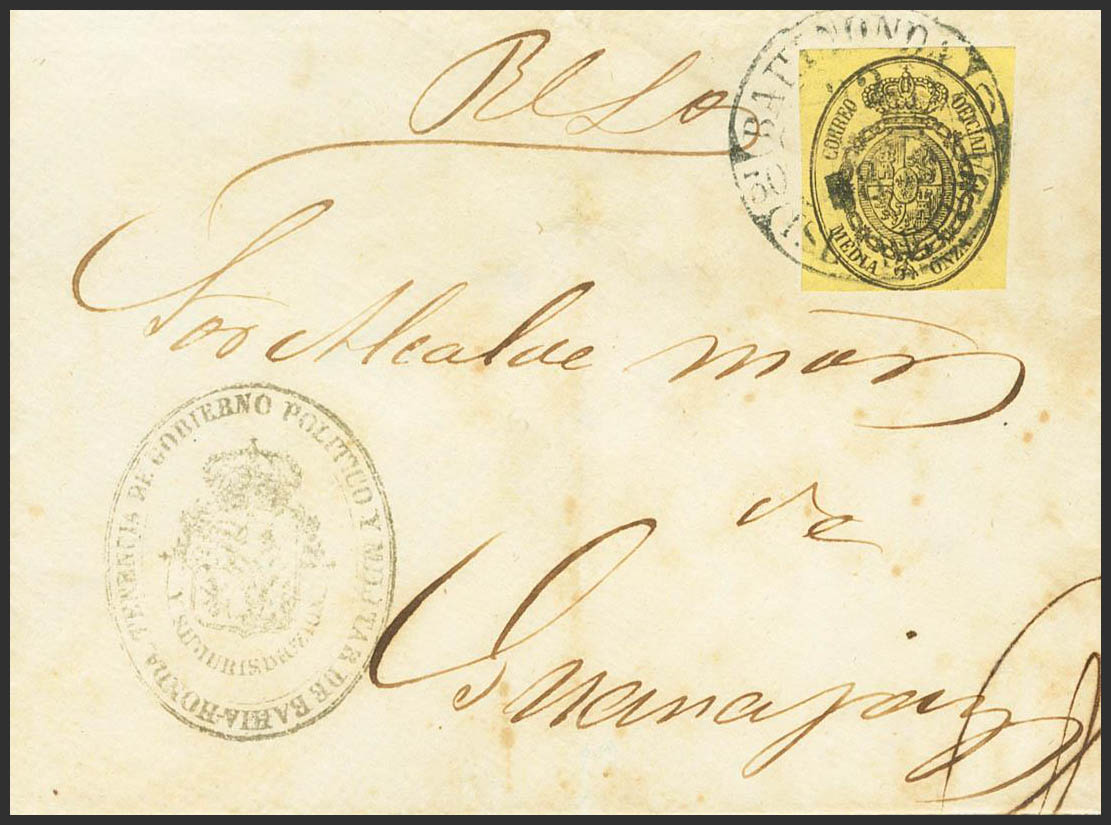 Rl So
BAHIA HONDA
CORREO OFICIAL
MEDIA ONZA
Sor Alcalde mor
de
Guanajay
TENENCIA DE GOBIERNO POLITICO Y MILITAR DE BAHIA-HONDA
Y SU JURISDICCION.